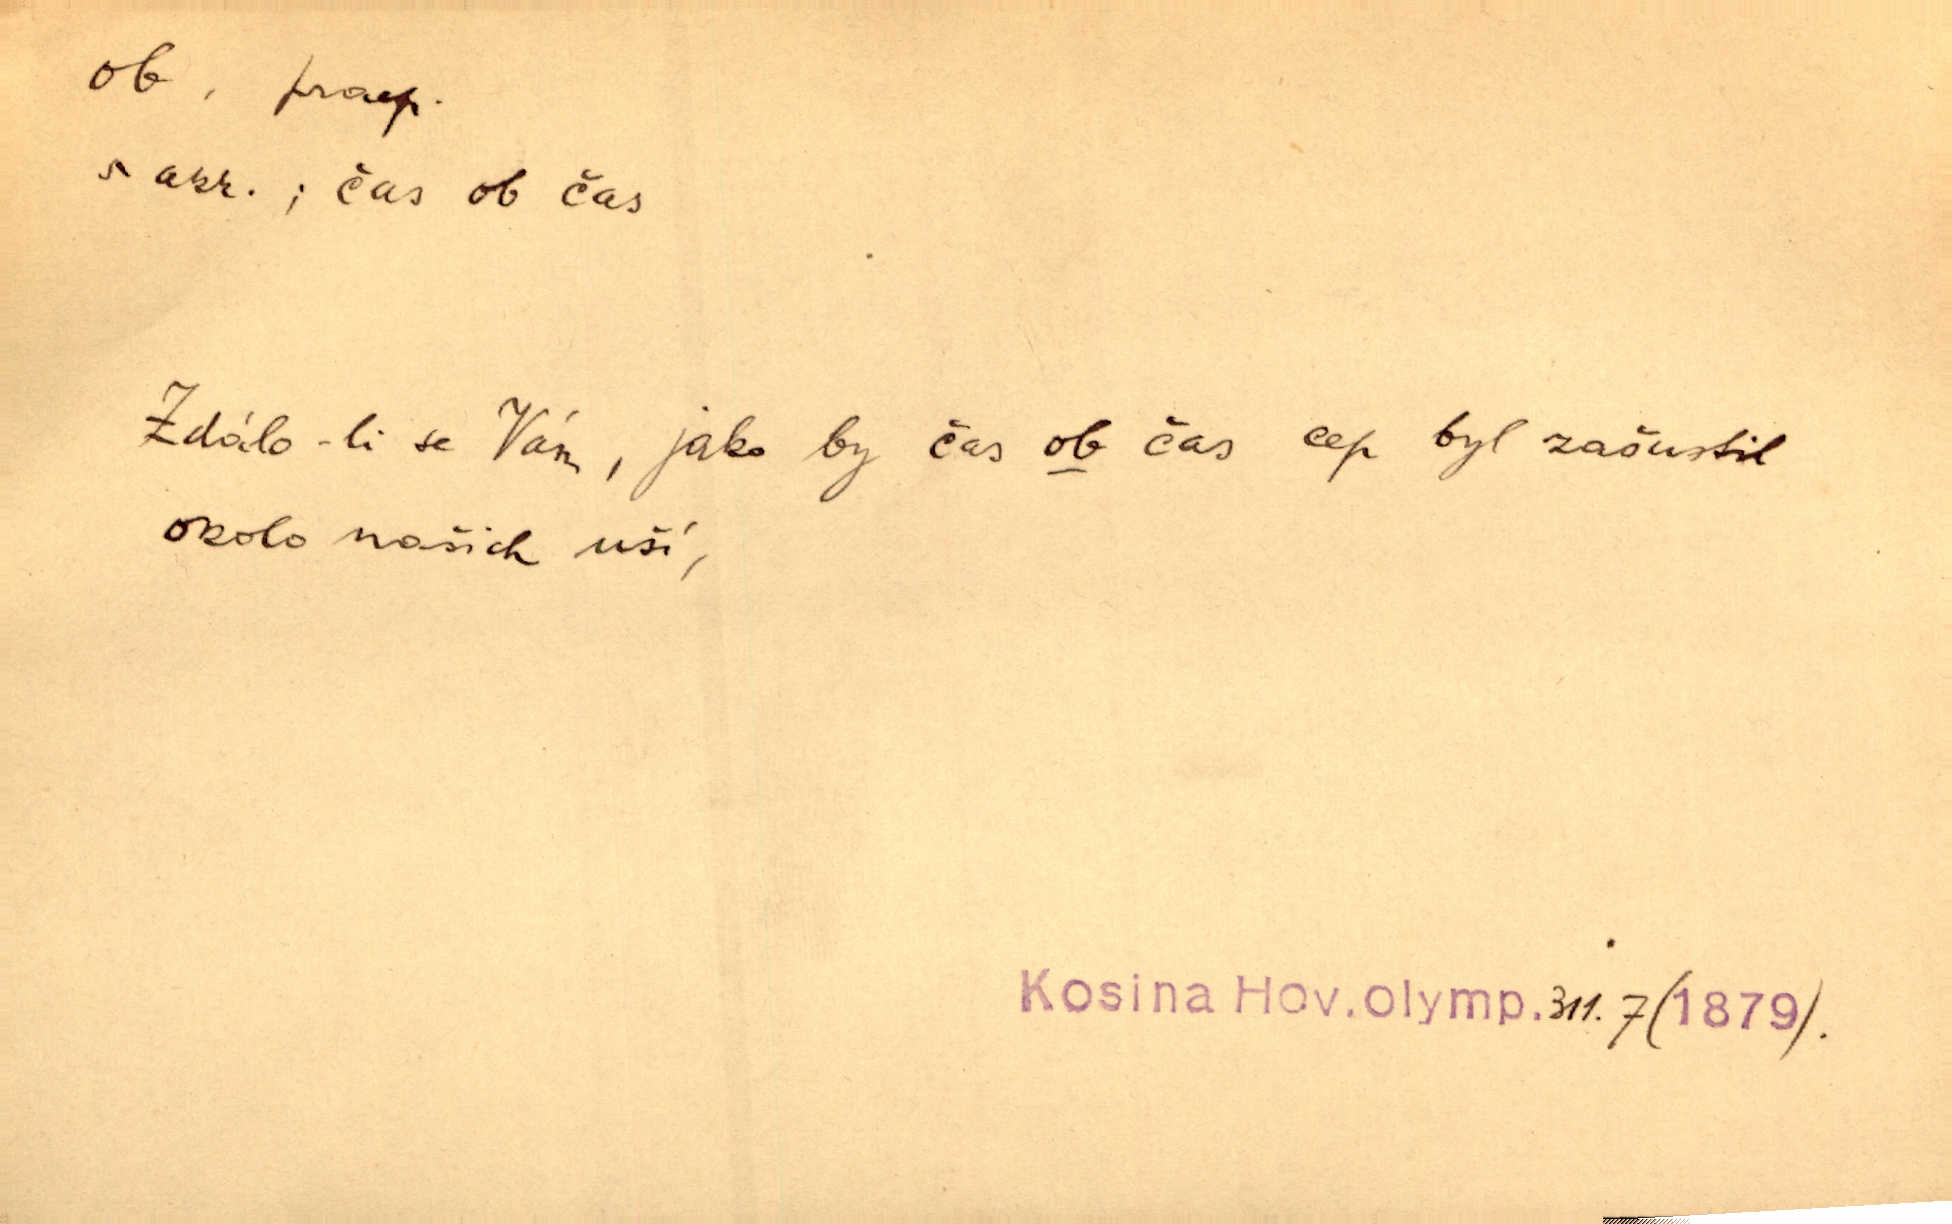 ob, praep.
s akk.; čas ob čas
Zdálo-li se Vám, jako by čas ob čas cep byl zašustil
okolo našich uší,
Kosina Hov.olymp. 311. 7(1879).